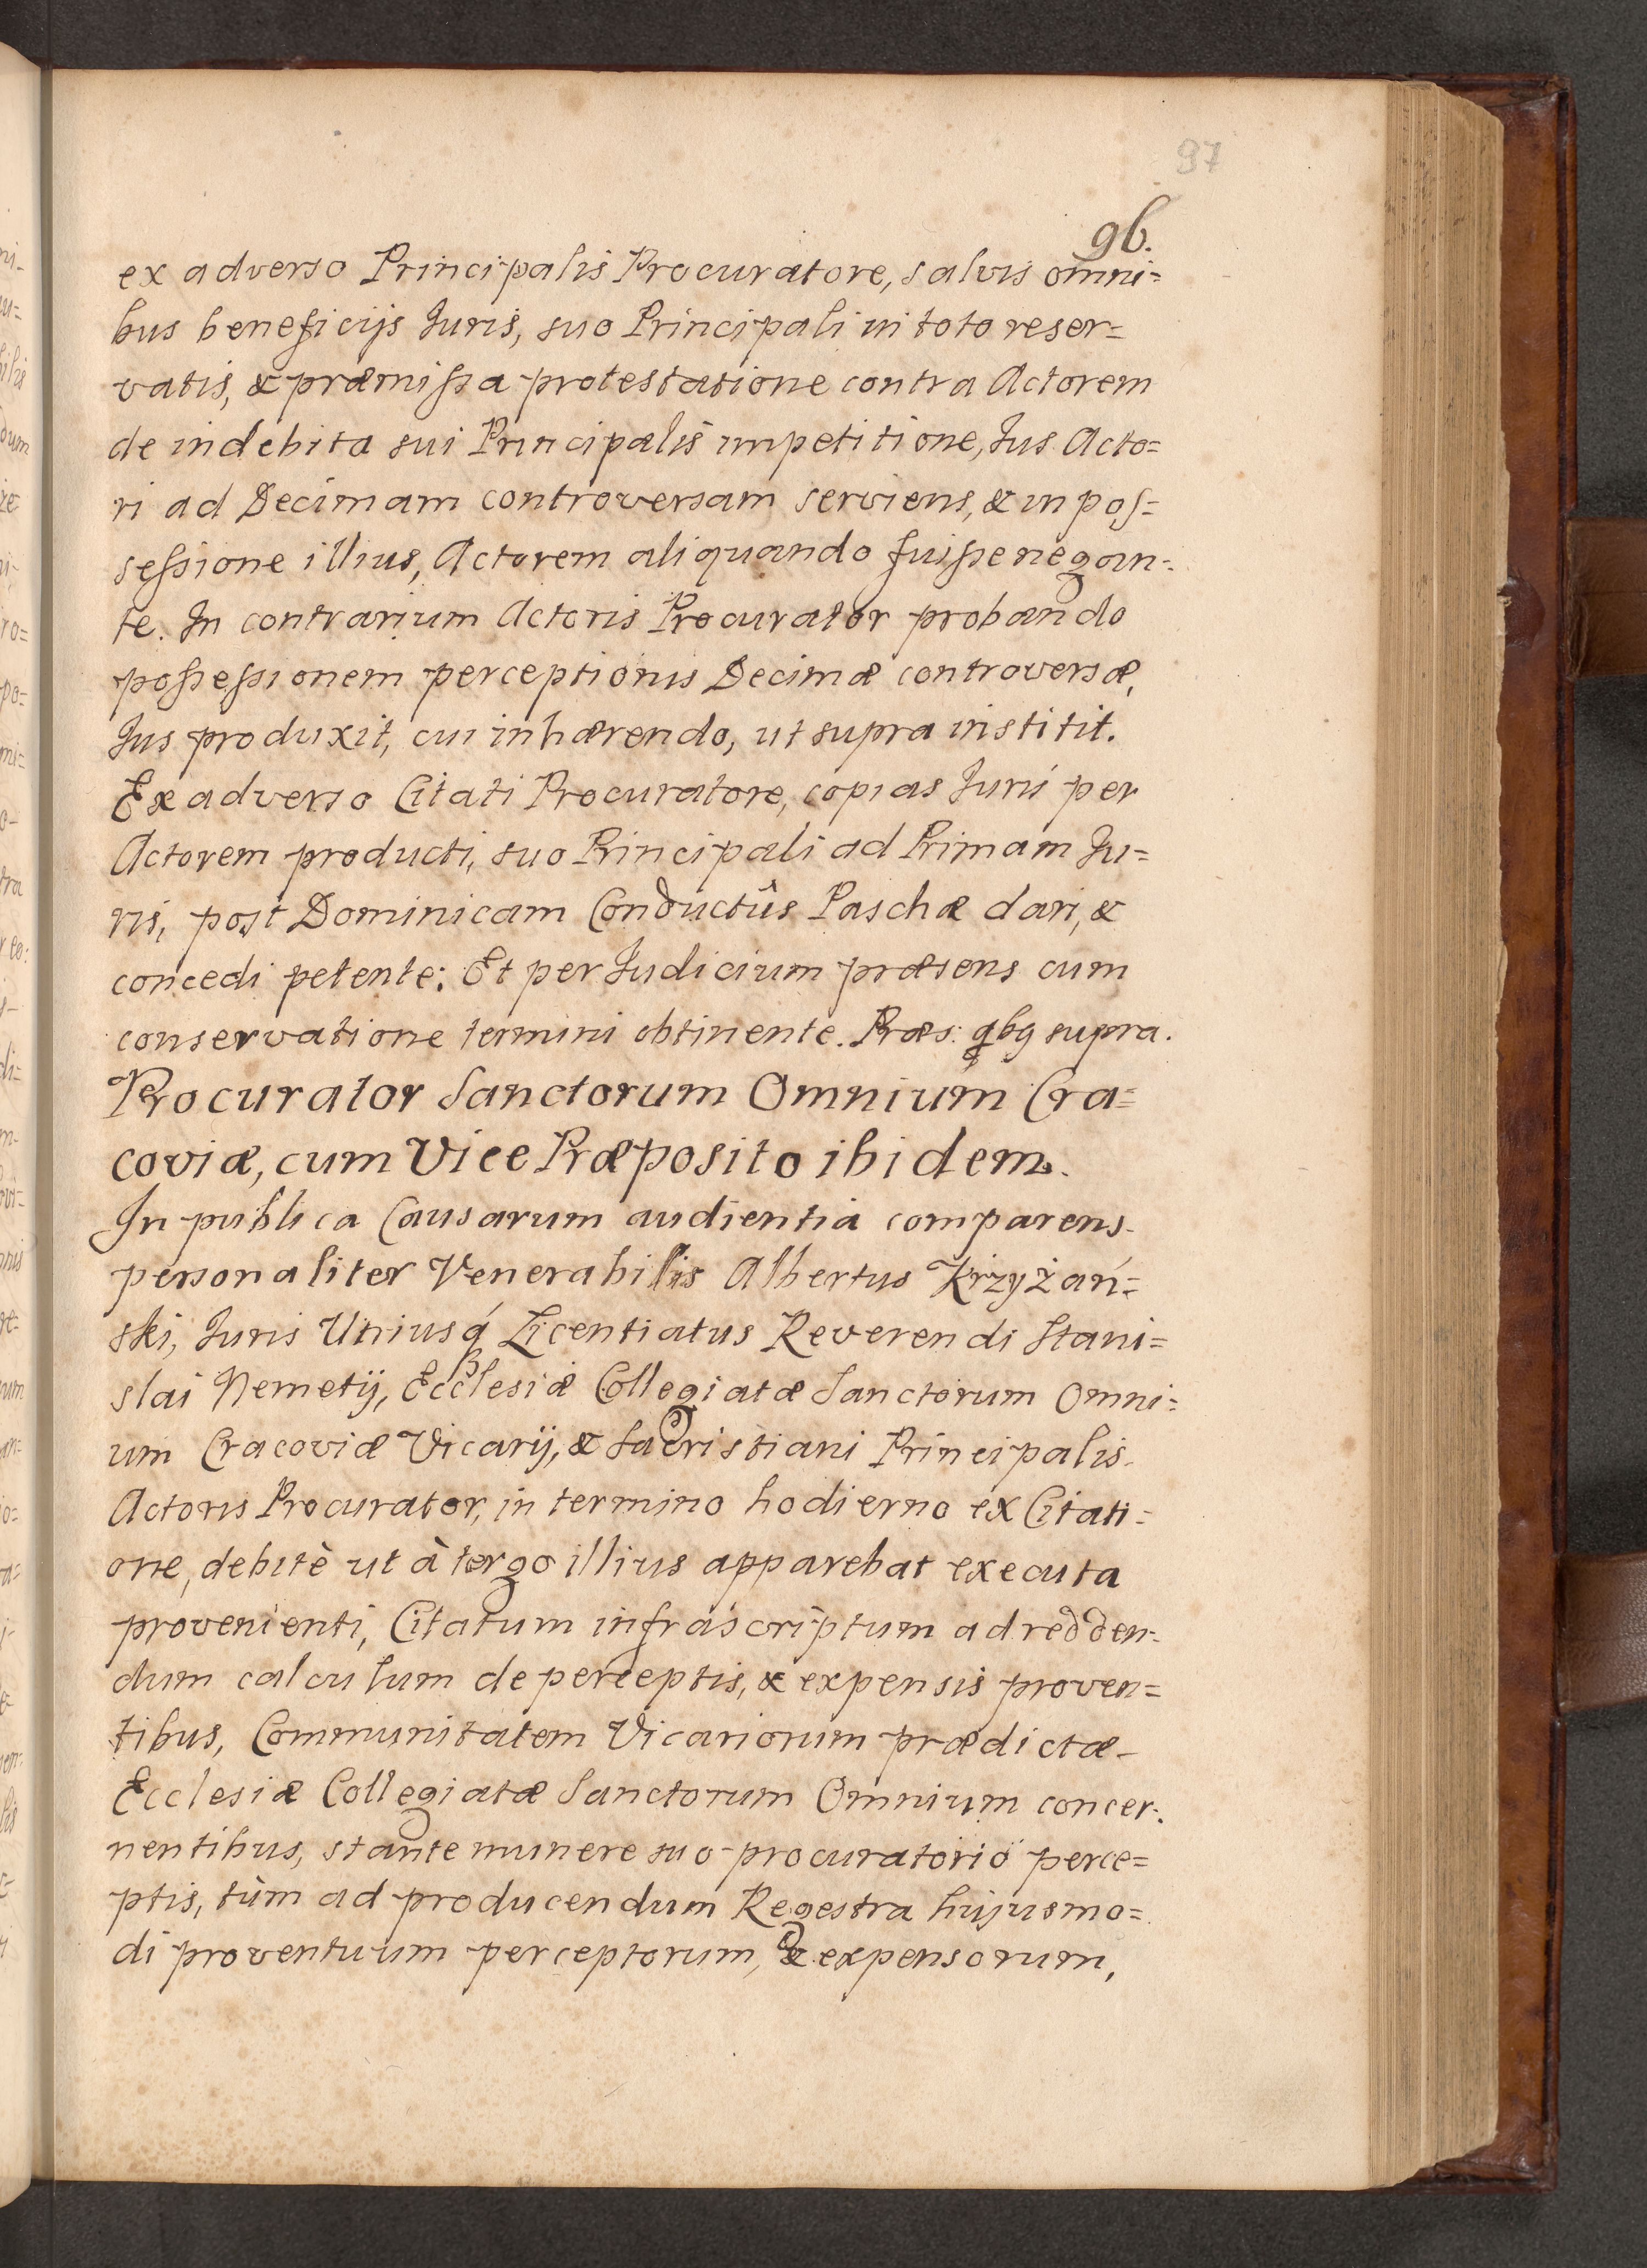 97
96.
ex adverso Principalis Procuratore, salvis omni=
bus beneficijs Juris, suo Principali in toto reser=
vatis, & præmissa protestatione contra Actorem
de indebita sui Principalis impetitione, Jus Acto=
ri ad Decimam controversam serviens, & in pos=
sessione illius, Actorem aliquando fuisse negan=
te. In contrarium Actoris Procurator probando
possessionem perceptionis Decimæ controversæ,
Jus produxit, cui inhærendo, ut supra institit.
Ex adverso Citati Procuratore, copias Juris per
Actorem producti, suo Principali ad Primam Ju=
ris, post Dominicam Conductûs Paschæ dari, &
concedi petente: Et per Judicium præsens cum
conservatione termini obtinente. Præs: qbg supra.
Procurator Sanctorum Omnium Cra=
coviæ, cum Vice Præposito ibidem.
In publica Causarum audientia comparens
personaliter Venerabilis Albertus Krzyżań=
ski, Juris Utriusq́ Licentiatus Reverendi Stani=
slai Nemetij, Ecclesiæ Collegiatæ Sanctorum Omni=
um Cracoviæ Vicarij, & Sacristiani Principalis
Actoris Procurator, in termino hodierno ex Citati=
one, debitè ut à tergo illius apparebat executa
provenienti, Citatum infrascriptum ad redden=
dum calculum de perceptis, & expensis proven=
tibus, Communitatem Vicariorum prædictæ
Ecclesiæ Collegiatæ Sanctorum Omnium concer=
nentibus, stante munere suo procuratorio perce=
ptis, tùm ad producendum Regestra hujusmo=
di proventuum perceptorum, & expensorum,